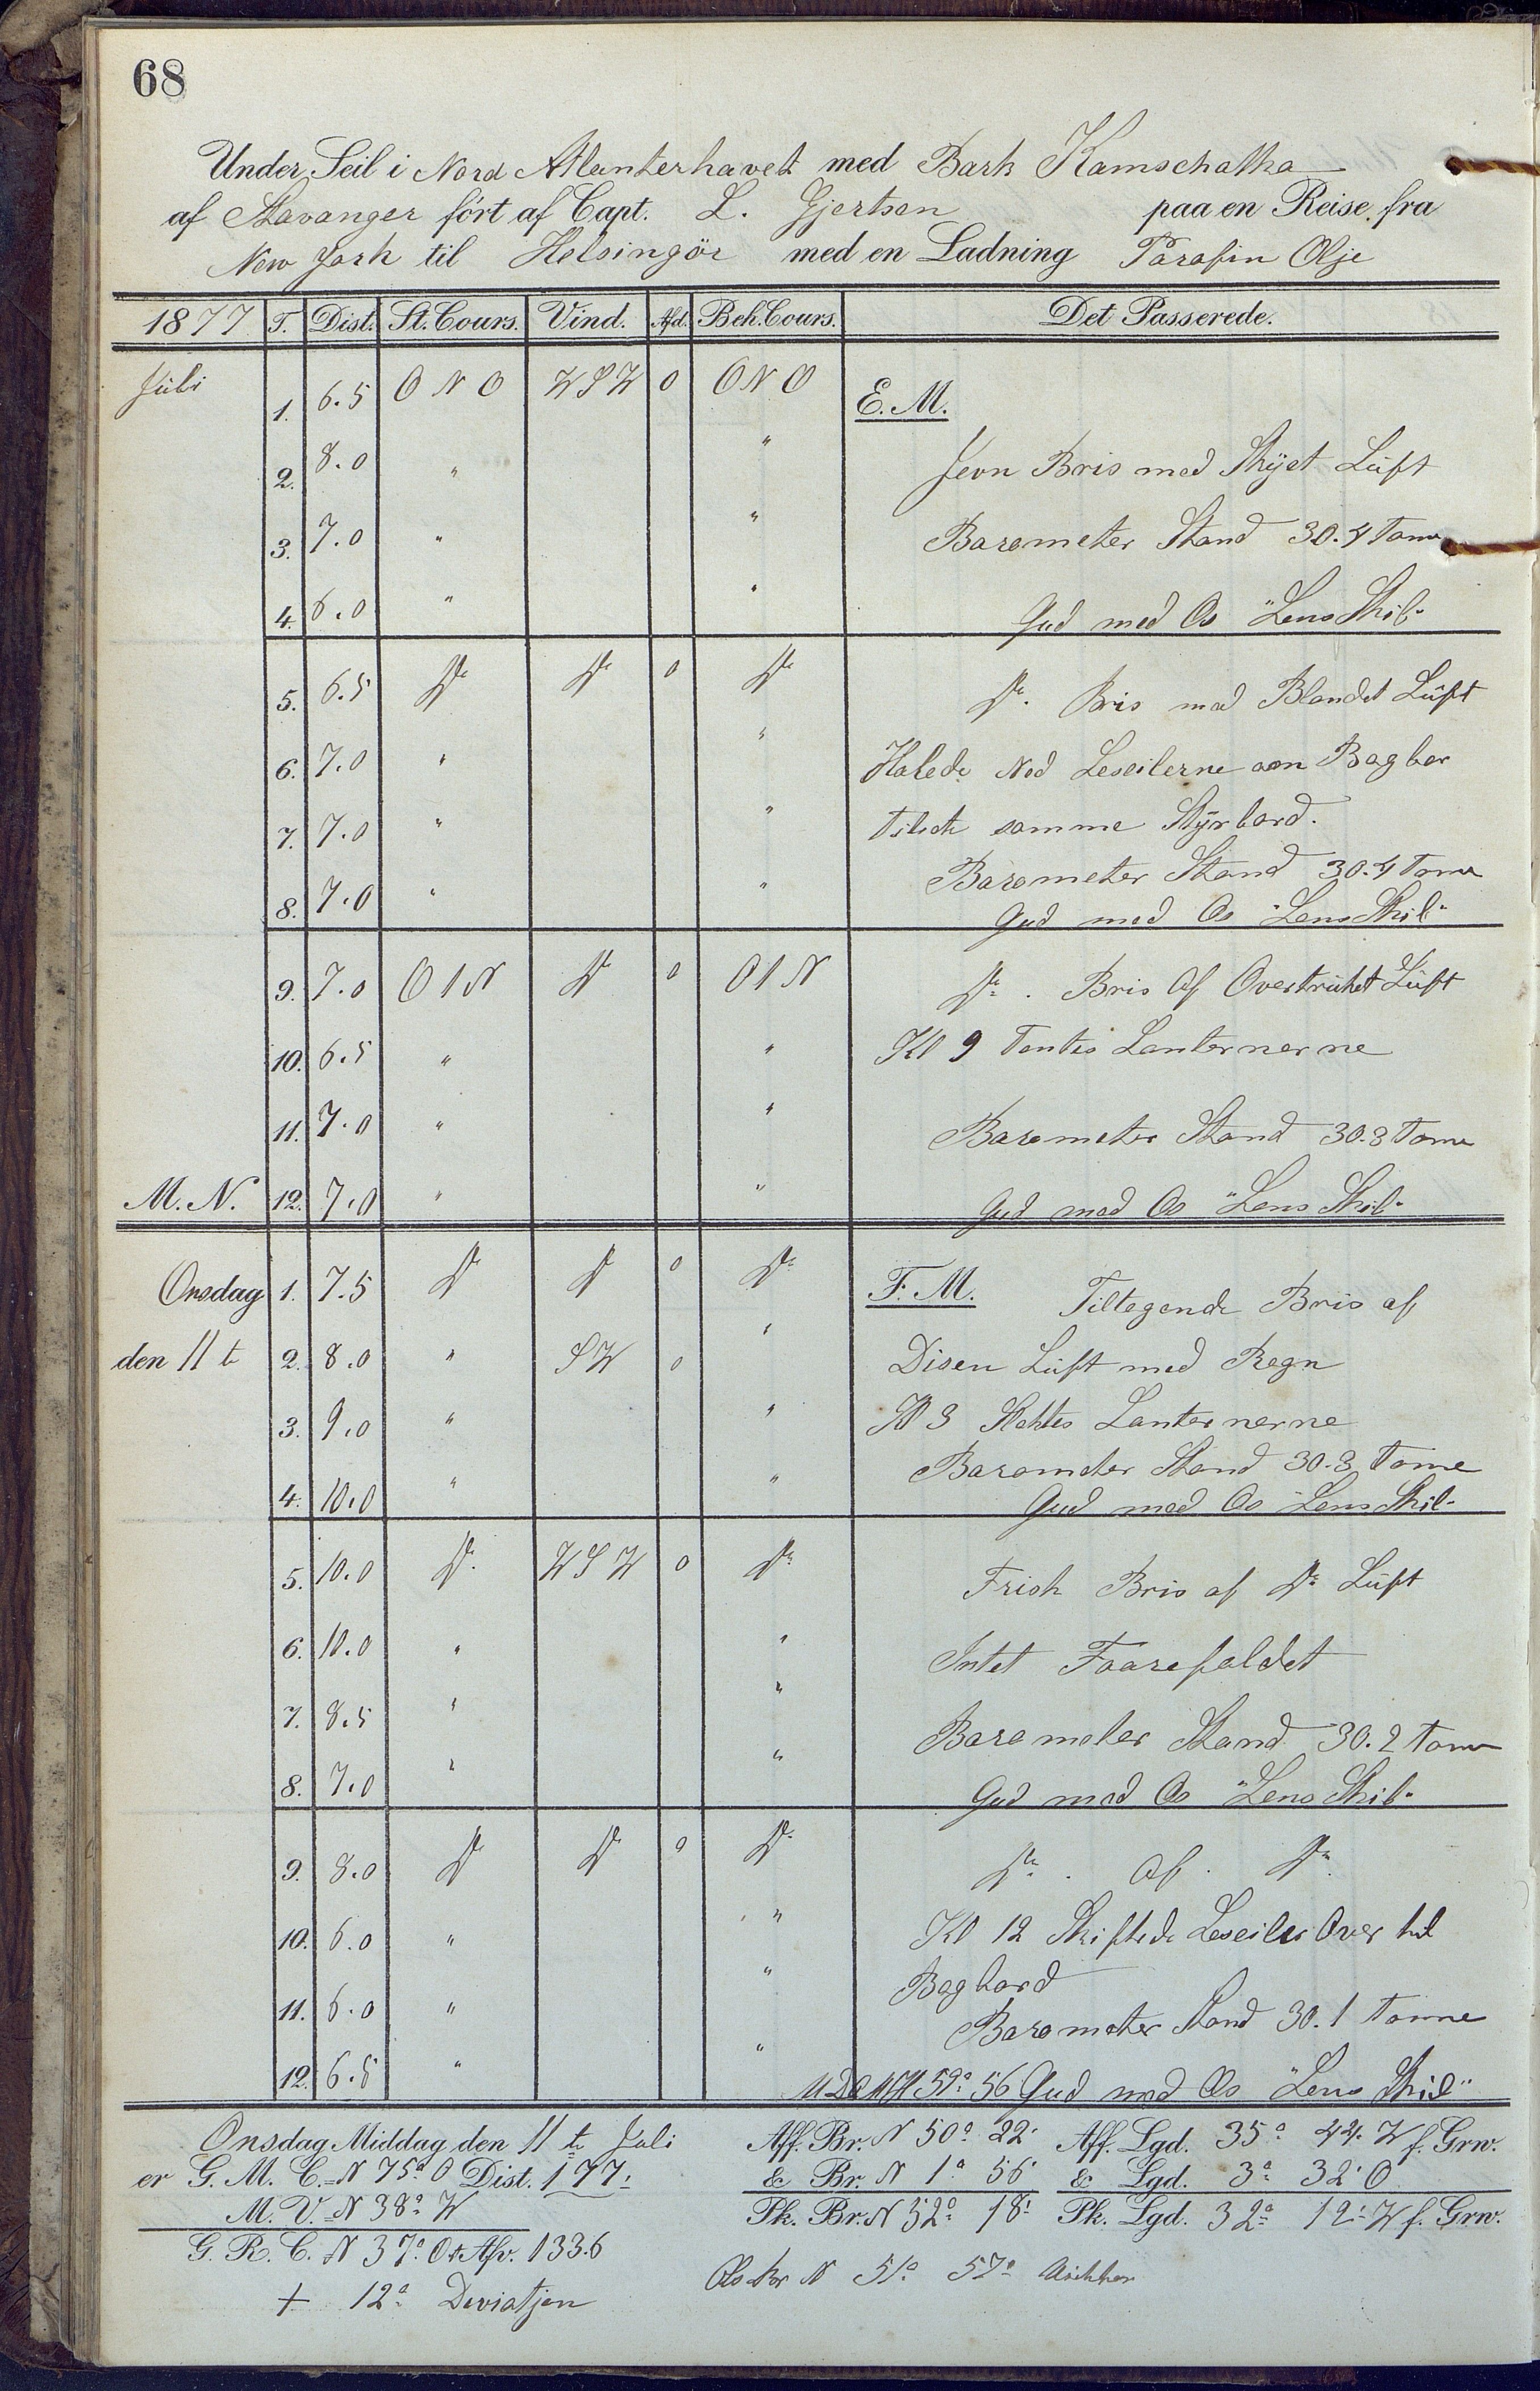 68
Under Seil i Nord Atlanterhavet med Bark Kamschatka
af Stavanger ført af Capt. L. Gjertsen paa en Reise fra
New York til Helsingör med en Ladning Parafin Olje
1877 T. Dist. St. Cours. Vind. Afd. Beh. Cours. Det Passerede.
Juli 1. 6.5 O N O W S W 0 O N O E. M.
2. 8.0 " " Jevn Bris med Skyet Luft
3. 7.0 " " Barometer Stand 30.4 Tome
4. 6.0 " " Gud med Os "Lens Skib"
5. 6.5 Do Do 0 Do Do. Bris med Blandet Luft
6. 7.0 " " Halede Ned Leseilerne om Bagbor
7. 7.0 " " samme Styrbord.
8. 7.0 " " Barometer Stand 30.4 Tome
Gud med Os "Lens Skib"
9. 7.0 O 1 N Do 0 O 1 N Do. Bris Af Overtruket Luft
10. 6.5 " " Kl 9 Tentes Lanternerne
11. 7.0 " " Barometer Stand 30.3 Tome
M. N. 12. 7.0 " " Gud med Os "Lens Skib"
Onsdag 1. 7.5 Do Do 0 Do F. M. Tiltagende Bris af
den 11 te 2. 8.0 " S W 0 " Disen Luft med Regn
3. 9.0 " " Kl 3 Slektes Lanternerne
4. 10.0 " " Baromter Stand 30.3 Tome
Gud med Os "Lens Skib"
5. 10.0 Do. W S W 0 Do Frisk Bris af Do Luft
6. 10.0 " " Intet Faarefaldet
7. 8.5 " " Barometer Stand 30.2 Tome
8. 7.0 " " Gud med Os "Lens Skib"
9. 8.0 Do Do 0 Do Do. Af. Do
10. 6.0 " " Kl 12 Skiftede Leseiler Over til
11. 6.0 " " Bagbord
Barometer Stand 30.1 Tomme
12. 6.5 " " 59° 56 Gud med Os "Lens Skib"
Onsdag Middag den 11 te Juli Aff. Br. N 50° 22' Aff. Lgd. 35° 44' W f. Grw.
er G. M. C. = N 75° O Dist. 177' & Br. N 1° 56' & Lgd. 3° 32' O
M. V. = N 38° W Pk. Br. N 52° 18' Pk. Lgd. 32° 12' W f. Grw.
G. R. C. N 37° O & Afv. 133.6
Obs Br N 51° 57'
+ 12° Deviatjon